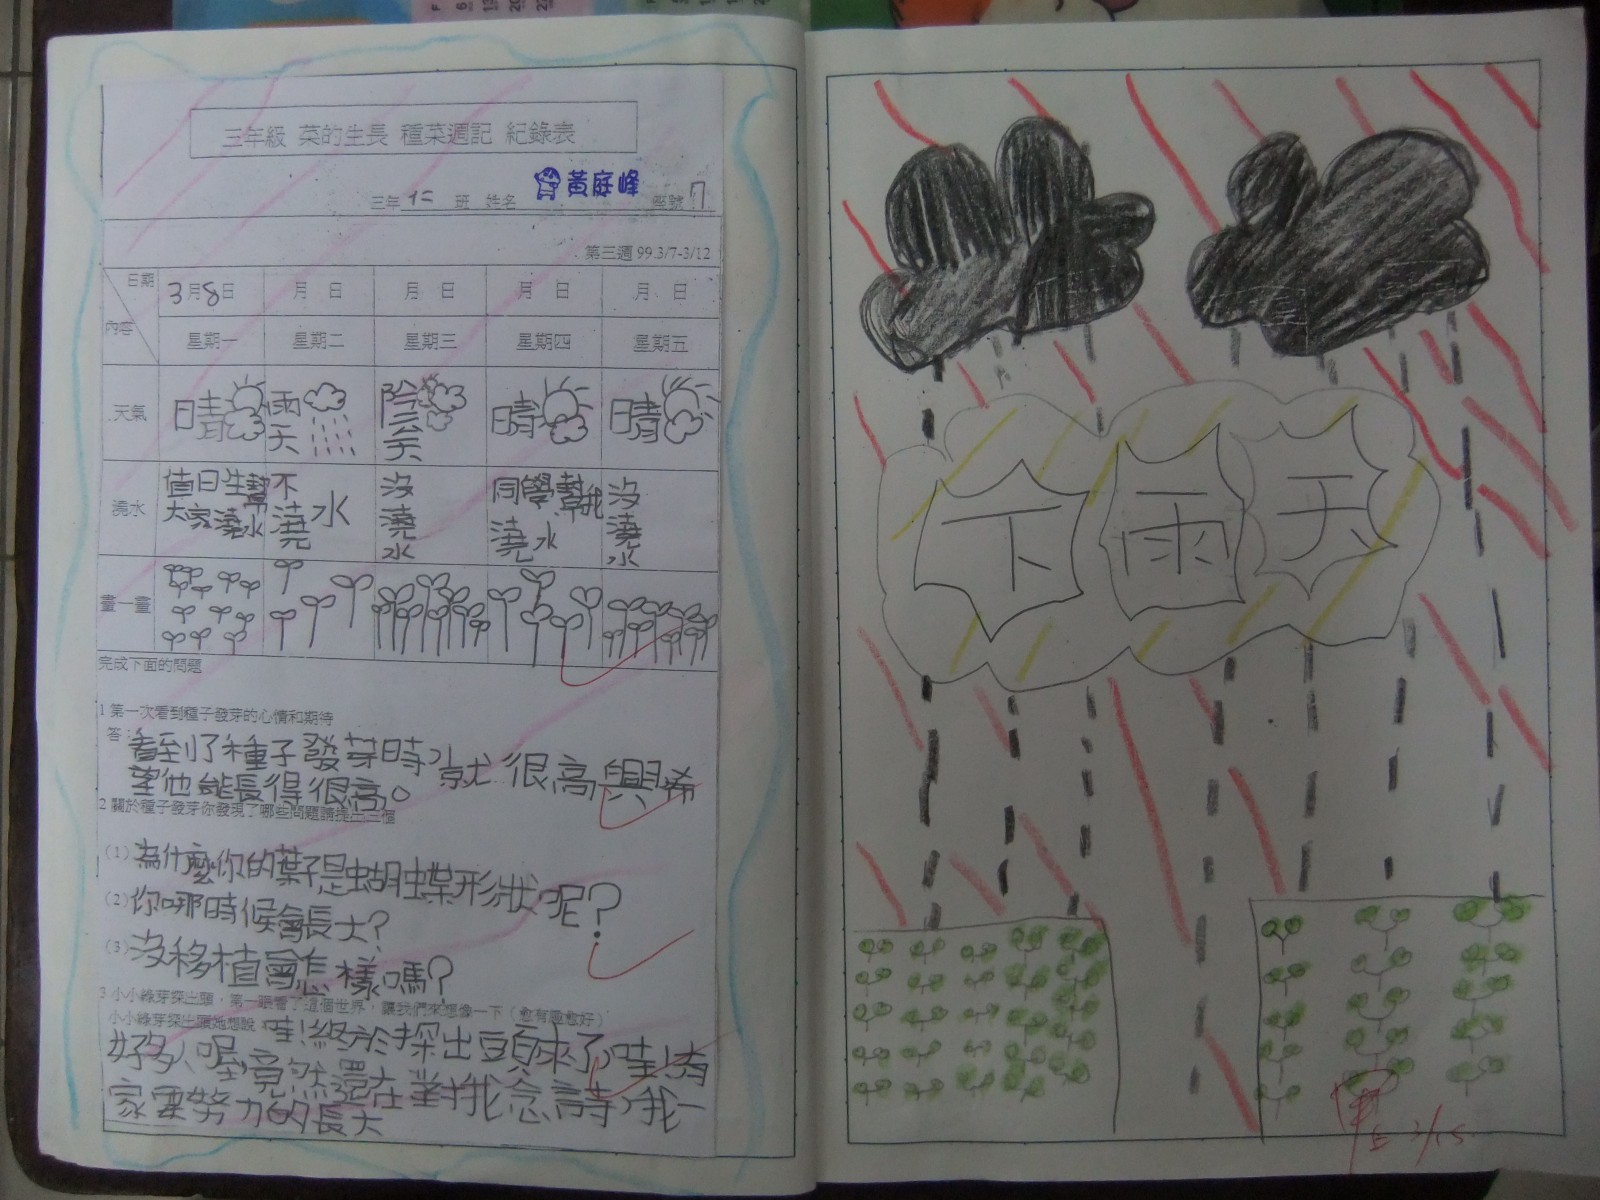 三年級 菜的生長 種菜週記 紀錄表
三年 仁 班 姓名 黃庭峰 座號 7
第三週 99.3/7-3/12
日期 3月8日 月 日 月 日 月 日 月 日
內容 星期一 星期二 星期三 星期四 星期五
天氣 晴 雨天 陰天 晴 晴
澆水 值日生幫大家澆水 不澆水 沒澆水 同學幫我澆水 沒澆水
畫一畫
完成下面的問題
1 第一次看到種子發芽的心情和期待
答：看到了種子發芽時，就很高興希
望他能長得很高。
2 關於種子發芽你發現了哪些問題請提出三個
(1) 為什麼你的葉子是蝴蝶形狀呢?
(2) 你哪時候會長大?
(3) 沒移植會怎樣嗎?
3 小小綠芽探出頭，第一眼看了這個世界，讓我們來想像一下（愈有趣愈好）
小小綠芽探出頭地想說 哇!終於探出頭來了，哇!有
好多人喔竟然還在對我念詩，我一
家要努力的長大
下雨天
3/15